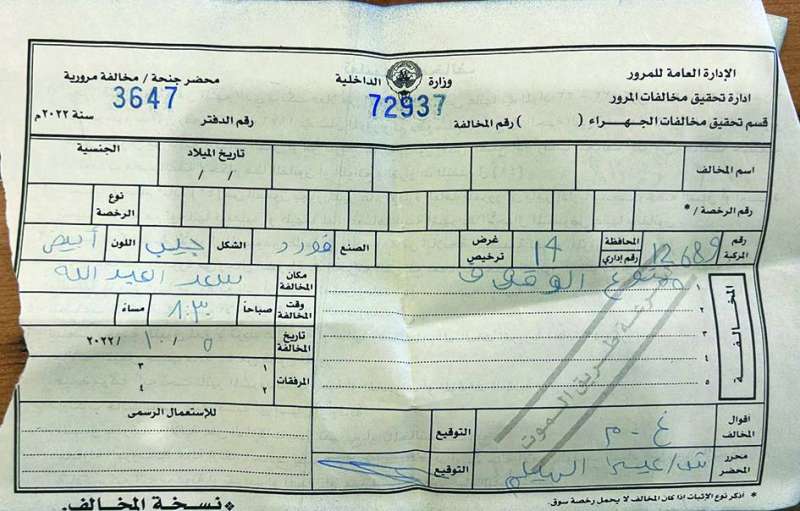 الإدارة العامة للمرور
وزارة الداخلية
محضر جنحة / مخالفة مرورية
ادارة تحقيق مخالفات المرور
72937
3647
قسم تحقيق مخالفات الجهراء ( ) رقم المخالفة
رقم الدفتر
سنة ٢٠٢٢م
اسم المخالف
تاريخ الميلاد
/ /
الجنسية
رقم الرخصة / *
نوع الرخصة
رقم المركبة
12689
المحافظة
رقم إداري
14
غرض ترخيص
الصنع
فورد
الشكل
جيب
اللون
أبيض
المخالفة
١ ممنوع الوقوف
٢
٣
٤
٥
السرعة طريق الموت
مكان المخالفة
سعد العبدالله
وقت المخالفة
صباحاً
٨:٣٠
مساءً
تاريخ المخالفة
٥ / ١٠ / ٢٠٢٢
المرفقات
١
٣
٢
٤
أقوال المخالف
غ . م
التوقيع
للإستعمال الرسمى
محرر المحضر
التوقيع
* أذكر نوع الإثبات إذا كان المخالف لا يحمل رخصة سوق.
* نسخة المخالف.